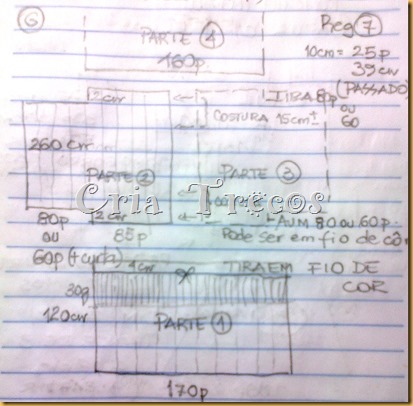 6
Reg 7
PARTE 4
160p
10cm = 25p
39cm
2cm
TIRA 80p (PASSADO)
OU
60
COSTURA 15cm ±
260cm
PARTE 2
PARTE 3
Cria Trecos
2cm
AUM 80 OU 60p.
80p
85p
Pode ser em fio de côr
OU
60p (+ curta)
4cm
TIRA EM FIO DE
COR
30g
120cm
PARTE 1
170p